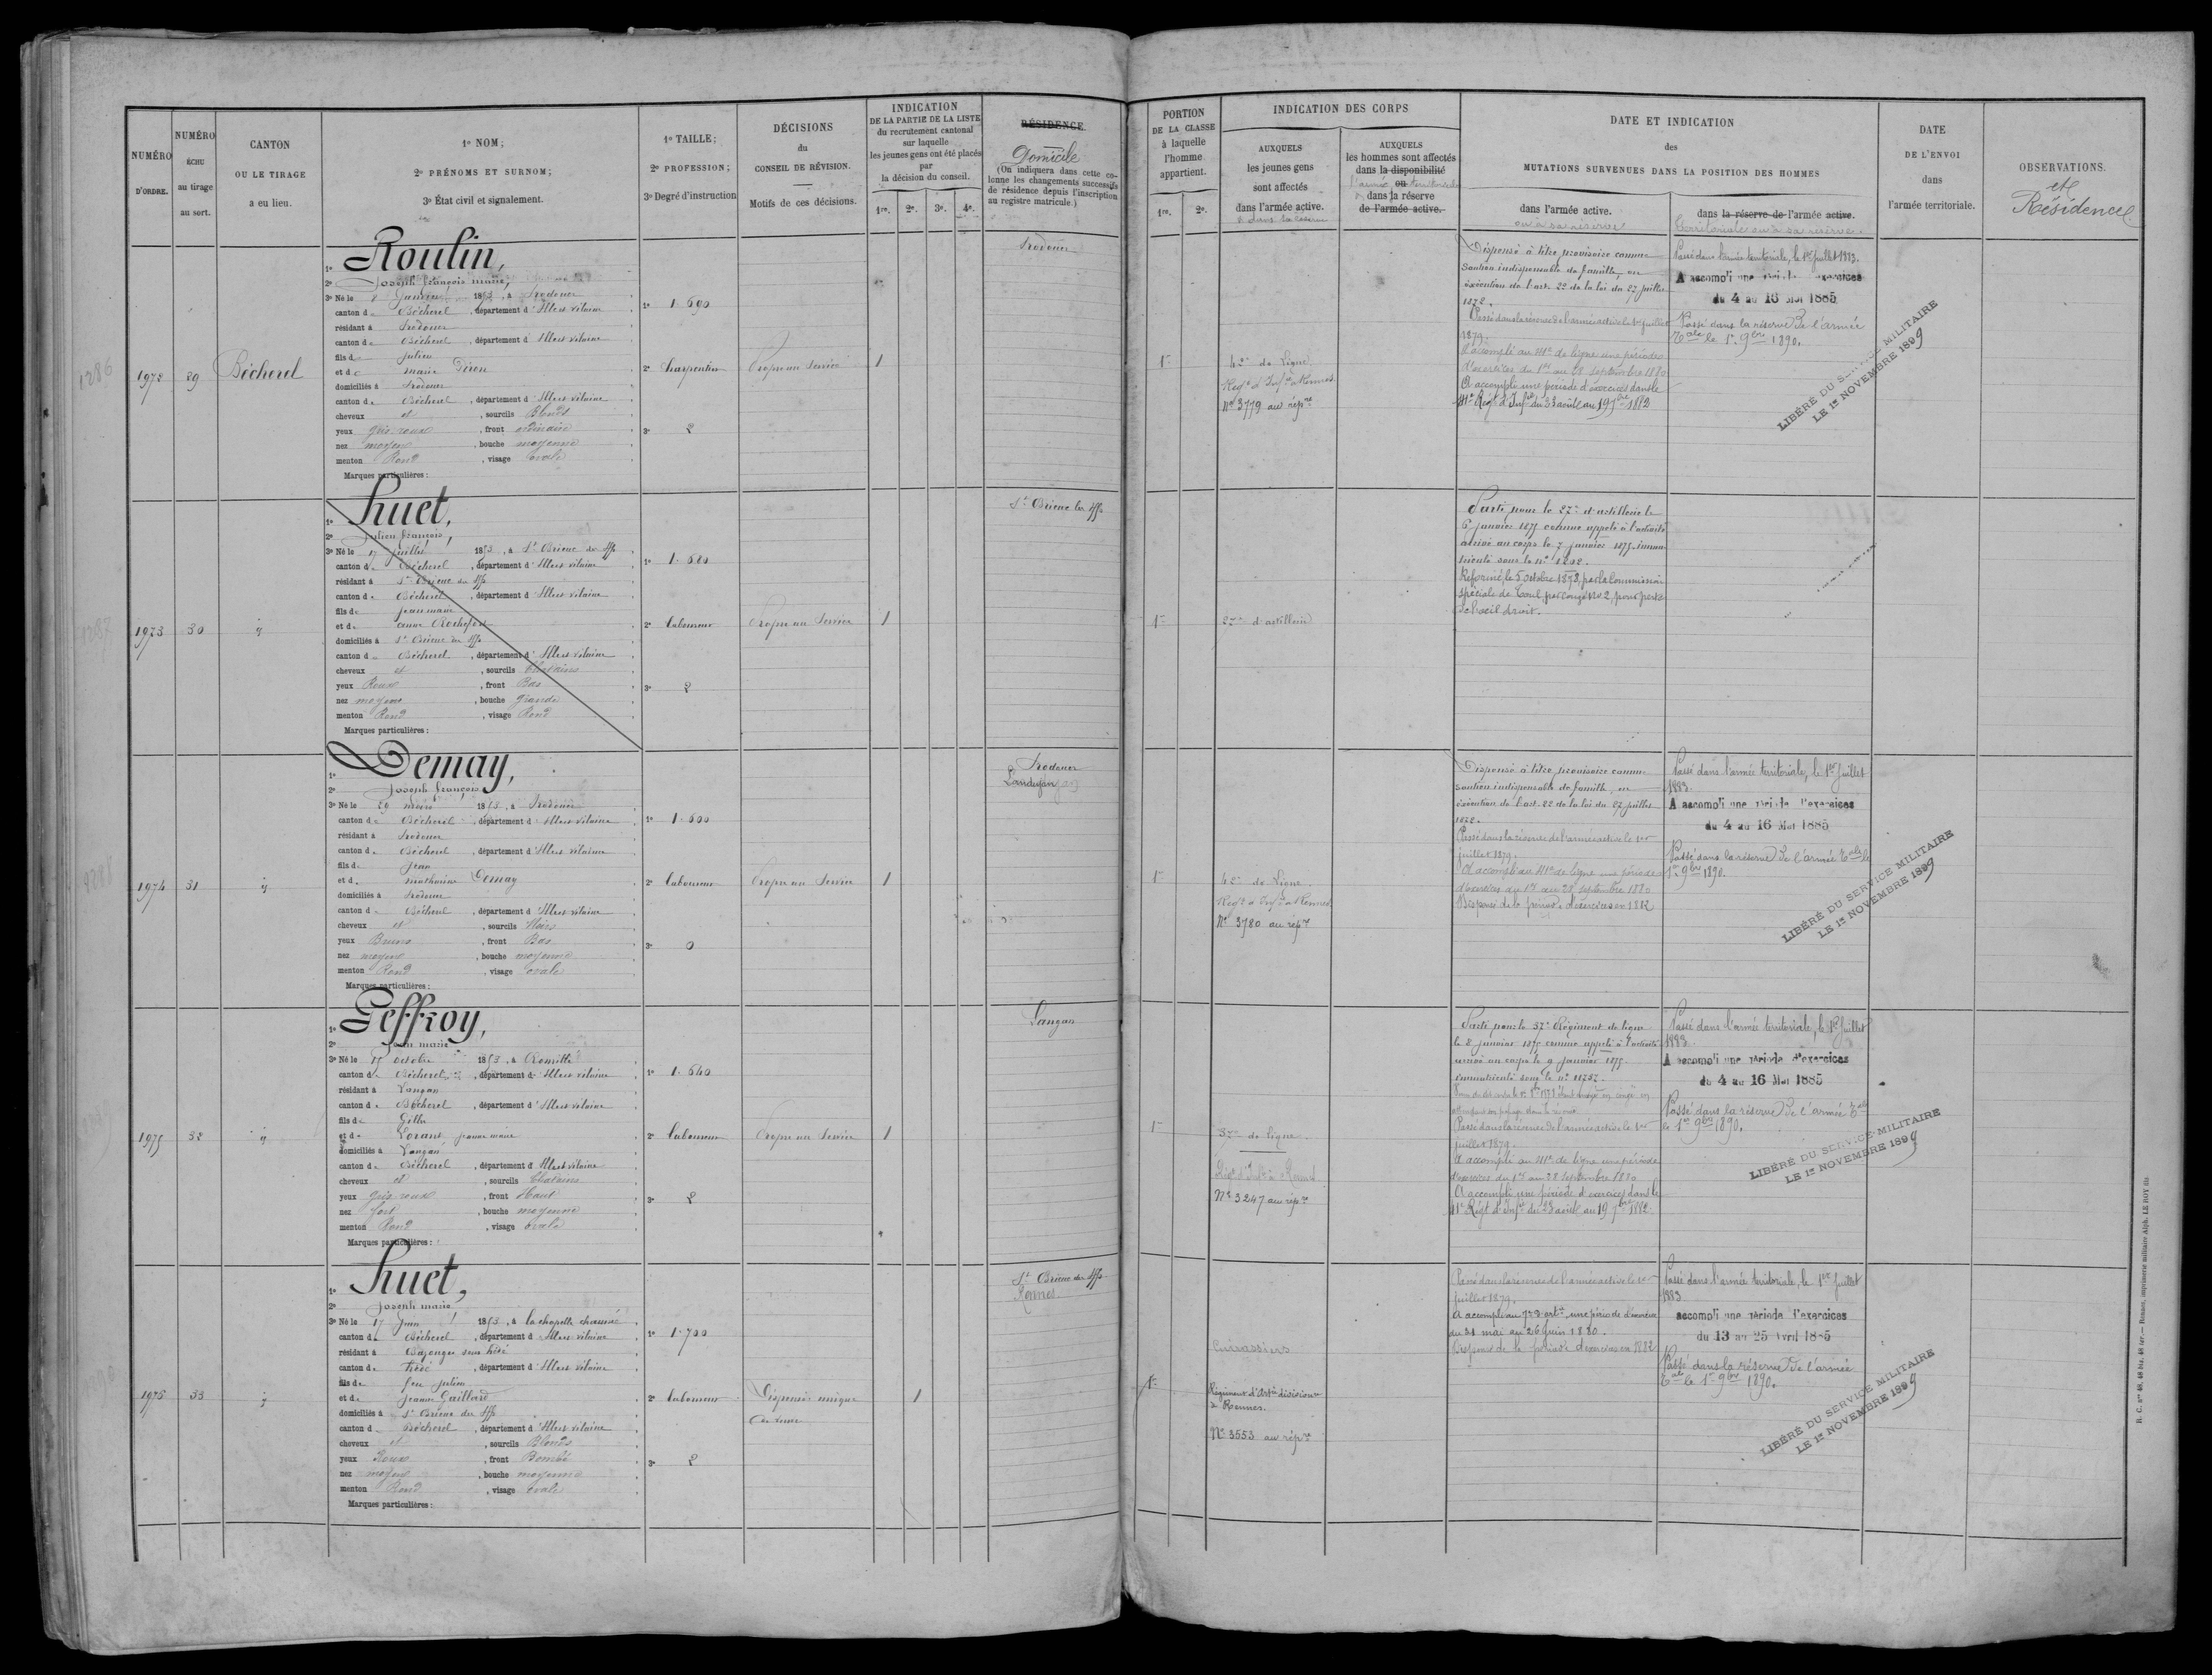 NUMÉRO
D'ORDRE.
NUMÉRO
ÉCHU
au tirage
au sort.
CANTON
OU LE TIRAGE
a eu lieu.
1º NOM;
2º PRÉNOMS ET SURNOM;
3º État civil et signalement.
1º TAILLE;
2º PROFESSION;
3º Degré d'instruction
DÉCISIONS
du
CONSEIL DE RÉVISION.
Motifs de ces décisions.
INDICATION
DE LA PARTIE DE LA LISTE
du recrutement cantonal
sur laquelle
les jeunes gens ont été placés
par
la décision du conseil.
1re. 2e. 3e. 4e.
RÉSIDENCE
Domicile
(On indiquera dans cette co-
lonne les changements successifs
de résidence depuis l'inscription
au registre matricule.)
PORTION
DE LA CLASSE
à laquelle
l'homme
appartient.
1re. 2e.
INDICATION DES CORPS
AUXQUELS
les jeunes gens
sont affectés
dans l'armée active.
AUXQUELS
les hommes sont affectés
dans la disponibilité
ou
dans la réserve
de l'armée active.
DATE ET INDICATION
des
MUTATIONS SURVENUES DANS LA POSITION DES HOMMES
dans l'armée active.
ou à sa réserve
dans la réserve de l'armée active.
territoriale ou à sa réserve.
DATE
DE L'ENVOI
dans
l'armée territoriale.
OBSERVATIONS.
et
Résidence
1286
1972
29
Bécherel
1º Roulin,
2º Joseph françois marie,
3º Né le 8 Janvier 1853, à Irodouer
canton de Bécherel, département d'Ille et vilaine
résidant à Irodouer
canton de Bécherel, département d'Ille et vilaine
fils de Julien
et de marie Piron
domiciliés à Irodouer
canton de Bécherel, département d'Ille et vilaine
cheveux et, sourcils Blonds
yeux gris roux, front ordinaire
nez moyen, bouche moyenne
menton Rond, visage ovale
Marques particulières:
1º 1.690
2º Charpentier
3º 2
Propre au Service
1
Irodouer
1re
42e de Ligne
Régt d'Infie à Rennes
Nº 3779 au répre
Dispensé à titre provisoire comme
soutien indispensable de famille, en
exécution de l'art. 22 de la loi du 27 juillet
1872.
Passé dans la réserve de l'armée active le 1er juillet
1879.
A accompli au 41e de ligne une période
d'exercices du 1er au 28 septembre 1880
A accompli une période d'exercices dans le
41e Régt d'Infie du 23 août au 19 7bre 1882
Passé dans l'armée territoriale, le 1er juillet 1883.
A accompli une période d'exercices
du 4 au 16 Mai 1885
Passé dans la réserve de l'armée
Tale le 1er 9bre 1890.
LIBÉRÉ DU SERVICE MILITAIRE
LE 1er NOVEMBRE 1899
1287
1973
30
"
1º Huet,
2º Julien françois,
3º Né le 17 juillet 1853, à St Brieuc des iffs
canton de Bécherel, département d'Ille et vilaine
résidant à St Brieuc des iffs
canton de Bécherel, département d'Ille et vilaine
fils de jean marie
et de Rochefort
domiciliés à St Brieuc des iffs
canton de Bécherel, département d'Ille et vilaine
cheveux et, sourcils Chatains
yeux Roux, front Bas
nez moyen, bouche grande
menton Rond, visage Rond
Marques particulières:
1º 1.680
2º laboureur
3º 2
Propre au Service
1
St Brieuc des iffs
1re
27e d'artillerie
Parti pour le 27e d'artillerie le
6 janvier 1875 comme appelé à l'activité
arrivé au corps le 7 janvier 1875. imma
triculé sous le nº 1202.
Réformé, le 5 octobre 1878, par la Commission
spéciale de Toul, par congé nº 2, pour perte
de l'œil droit.
1288
1974
31
"
1º Demay,
2º Joseph françois
3º Né le 29 mars 1853, à Irodouer
canton de Bécherel, département d'Ille et vilaine
résidant à Irodouer
canton de Bécherel, département d'Ille et vilaine
fils de Jean
et de mathurine Demay
domiciliés à Irodouer
canton de Bécherel, département d'Ille et vilaine
cheveux et, sourcils Noirs
yeux Bruns, front Bas
nez moyen, bouche moyenne
menton Rond, visage ovale
Marques particulières:
1º 1.600
2º laboureur
3º 0
Propre au Service
1
Irodouer
Landujan
1re
42e de Ligne.
Régt d'Infie à Rennes
Nº 3780 au répre
Dispensé à titre provisoire comme
soutien indispensable de famille, en
exécution de l'art. 22 de la loi du 27 juillet
1872.
Passé dans la réserve de l'armée active le 1er
juillet 1879.
A accompli au 41e de ligne une période
d'exercices du 1er au 28 septembre 1880
Dispensé de la période d'exercices en 1882
Passé dans l'armée territoriale, le 1er Juillet
1883.
A accompli une période d'exercices
du 4 au 16 Mai 1885
Passé dans la réserve de l'armée Tale le
1er 9bre 1890.
LIBÉRÉ DU SERVICE MILITAIRE
LE 1er NOVEMBRE 1899
1975
32
"
1º Geffroy,
2º Jean marie
3º Né le 15 octobre 1853, à Romillé
canton de Bécherel, département d'Ille et vilaine
résidant à Langan
canton de Bécherel, département d'Ille et vilaine
fils de Gilles
et de Lorant jeanne marie
domiciliés à Langan
canton de Bécherel, département d'Ille et vilaine
cheveux et, sourcils Chatains
yeux gris roux, front Haut
nez fort, bouche moyenne
menton Rond, visage ovale
Marques particulières:
1º 1.640
2º laboureur
3º 2
Propre au Service
1
Langan
1re
37e de ligne.
Régt d'Infie à Rennes
Nº 3247 au répre
Parti pour le 37e Régiment de ligne
le 8 janvier 1875 comme appelé à l'activité
arrivé au corps le 9 janvier 1875.
immatriculé sous le nº
Passé dans la réserve de l'armée active le 1er
juillet 1879.
A accompli au 41e de ligne une période
d'exercices du 1er au 28 septembre 1880
A accompli une période d'exercices dans le
41e Régt d'Infie du 23 août au 19 7bre 1882
Passé dans l'armée territoriale, le 1er Juillet
1883.
A accompli une période d'exercices
du 4 au 16 Mai 1885
Passé dans la réserve de l'armée Tale
le 1er 9bre 1890.
LIBÉRÉ DU SERVICE MILITAIRE
LE 1er NOVEMBRE 1899
1976
33
"
1º Huet,
2º Joseph marie
3º Né le 17 Juin 1853, à la chapelle chaussée
canton de Bécherel, département d'Ille et vilaine
résidant à Bazouges sous hédé
canton de hédé, département d'Ille et vilaine
fils de feu julien
et de jeanne Gaillard
domiciliés à St Brieuc des iffs
canton de Bécherel, département d'Ille et vilaine
cheveux et, sourcils Blonds
yeux Roux, front Bombé
nez moyen, bouche moyenne
menton Rond, visage ovale
Marques particulières:
1º 1.700
2º laboureur
3º 2
Dispensé unique
de veuve
1
St Brieuc des iffs
Rennes
1re
Cuirassiers
Régiment d'Artie divisionre
à Rennes.
Nº 3553 au répre
Passé dans la réserve de l'armée active le 1er
juillet 1879.
A accompli au 7e d'artie une période d'exercices
du 31 mai au 26 juin 1880.
Dispensé de la période d'exercices en 1882
Passé dans l'armée territoriale, le 1er Juillet
1883
accompli une période d'exercices
du 13 au 25 Avril 1885
Passé dans la réserve de l'armée
Tale le 1er 9bre 1890.
LIBÉRÉ DU SERVICE MILITAIRE
LE 1er NOVEMBRE 1899
R. C. nos 48, 48 bis, 48 ter. — Rennes, imprimerie militaire Alph. LE ROY fils